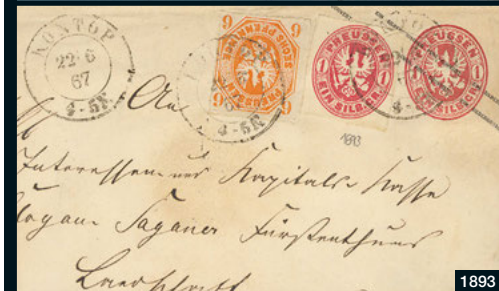 KONTOP
22 6
67
4-5N
6 6
SECHS PFENNIGE
PREUSSEN
PREUSSEN
1 1
EIN SILB.GR.
PREUSSEN
1
EIN SILB.GR.
4-5N
1893
An
Interessen und Kapitals Kasse
Glogau Saganer Fürstenthums
Landschaft
1893